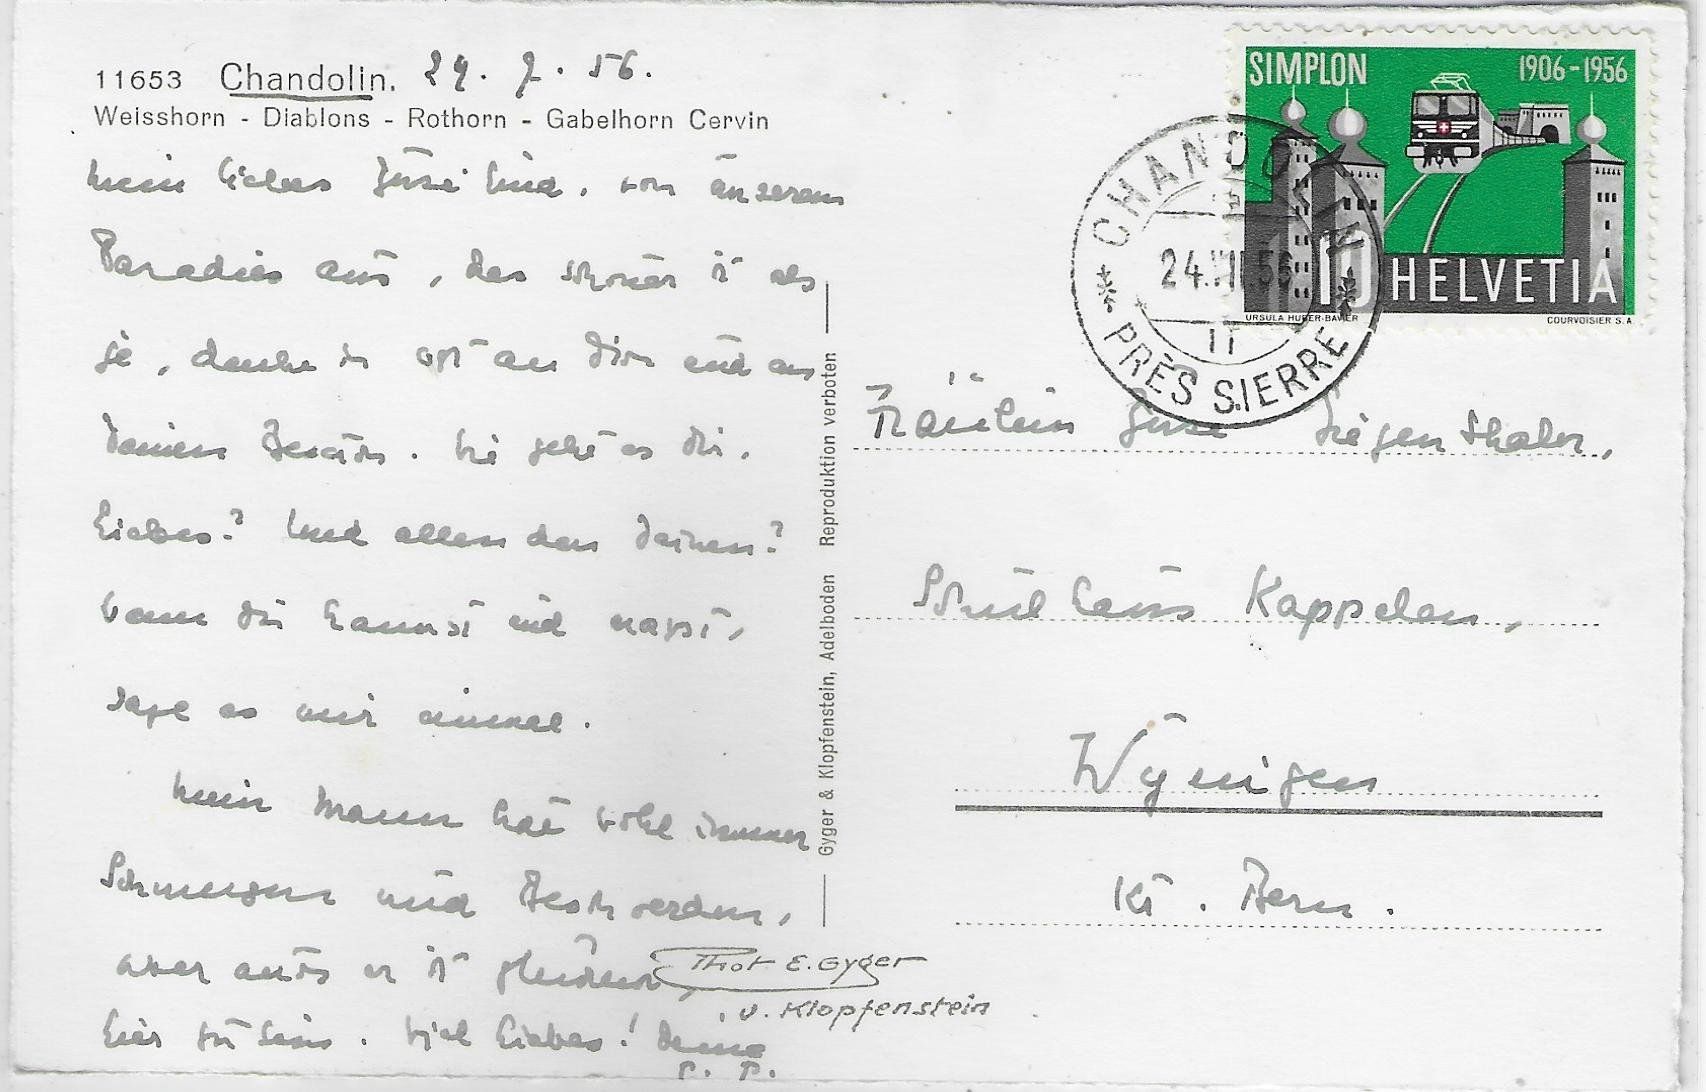 11653 Chandolin. 24. 7. 56.
Weisshorn - Diablons - Rothorn - Gabelhorn Cervin
mein liebes Kind, von unserem
Paradies aus, das schöner ist als
je, denke ich oft an Dich und an
Deinen Besuch. Wie geht es Dir,
Liebes? Und allen den Deinen?
Wenn Du kannst und magst,
sage es mir einmal.
Mein Mann hat wohl immer
Schmerzen und Beschwerden,
aber auch er ist glücklich,
hier zu sein. Viel Liebes! Deine
Gyger & Klopfenstein, Adelboden Reproduktion verboten
Phot E. Gyger
u. Klopfenstein
SIMPLON 1906-1956
10 HELVETIA
URSULA HUBER-BAVIER COURVOISIER S.A.
CHANDOLIN
24.VII.56
PRÈS SIERRE
Fräulein Siegenthaler,
Schulhaus Kappelen,
Wynigen
Kt. Bern.